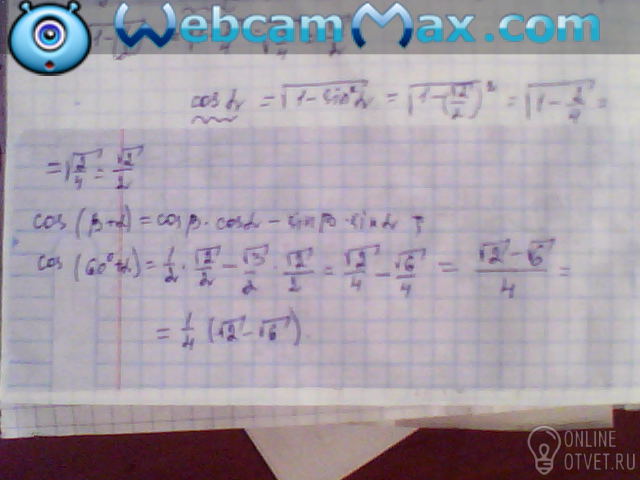 WebcamMax.com
cos α = √(1 - sin²α) = √(1 - (√2/2)²) = √(1 - 2/4) =
= √(2/4) = √2/2
cos(β+α) = cosβ · cosα - sinβ · sinα
cos(60°+α) = 1/2 · √2/2 - √3/2 · √2/2 = √2/4 - √6/4 = (√2 - √6)/4 =
= 1/4 (√2 - √6).
ONLINE
OTVET.RU